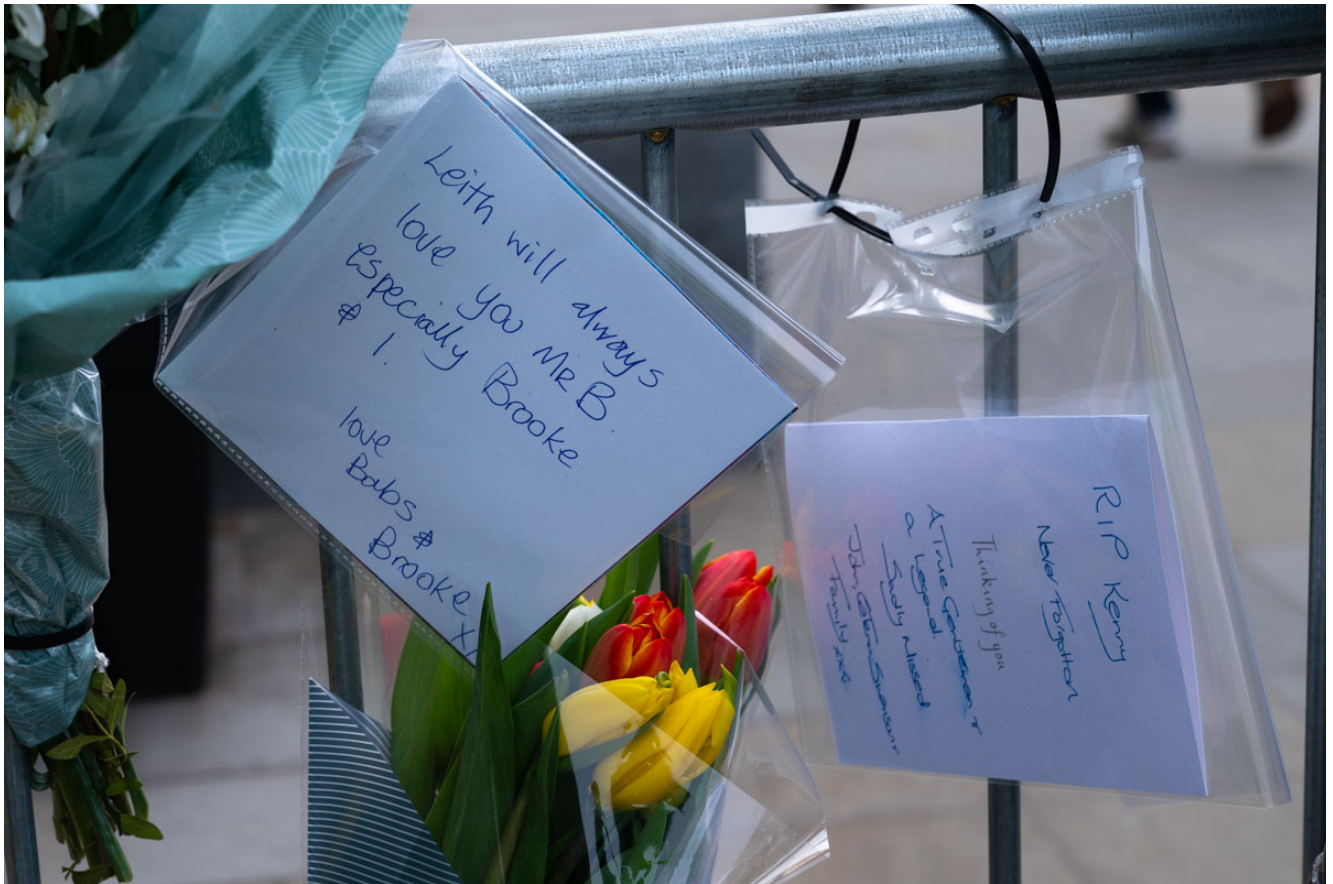 Leith will always
love you Mr B.
especially Brooke
& I.
love
Babs &
Brooke x
RIP Kenny
Never Forgotten
Thinking of you
A True Gentleman &
a Legend.
Sadly Missed
John
Family xxx